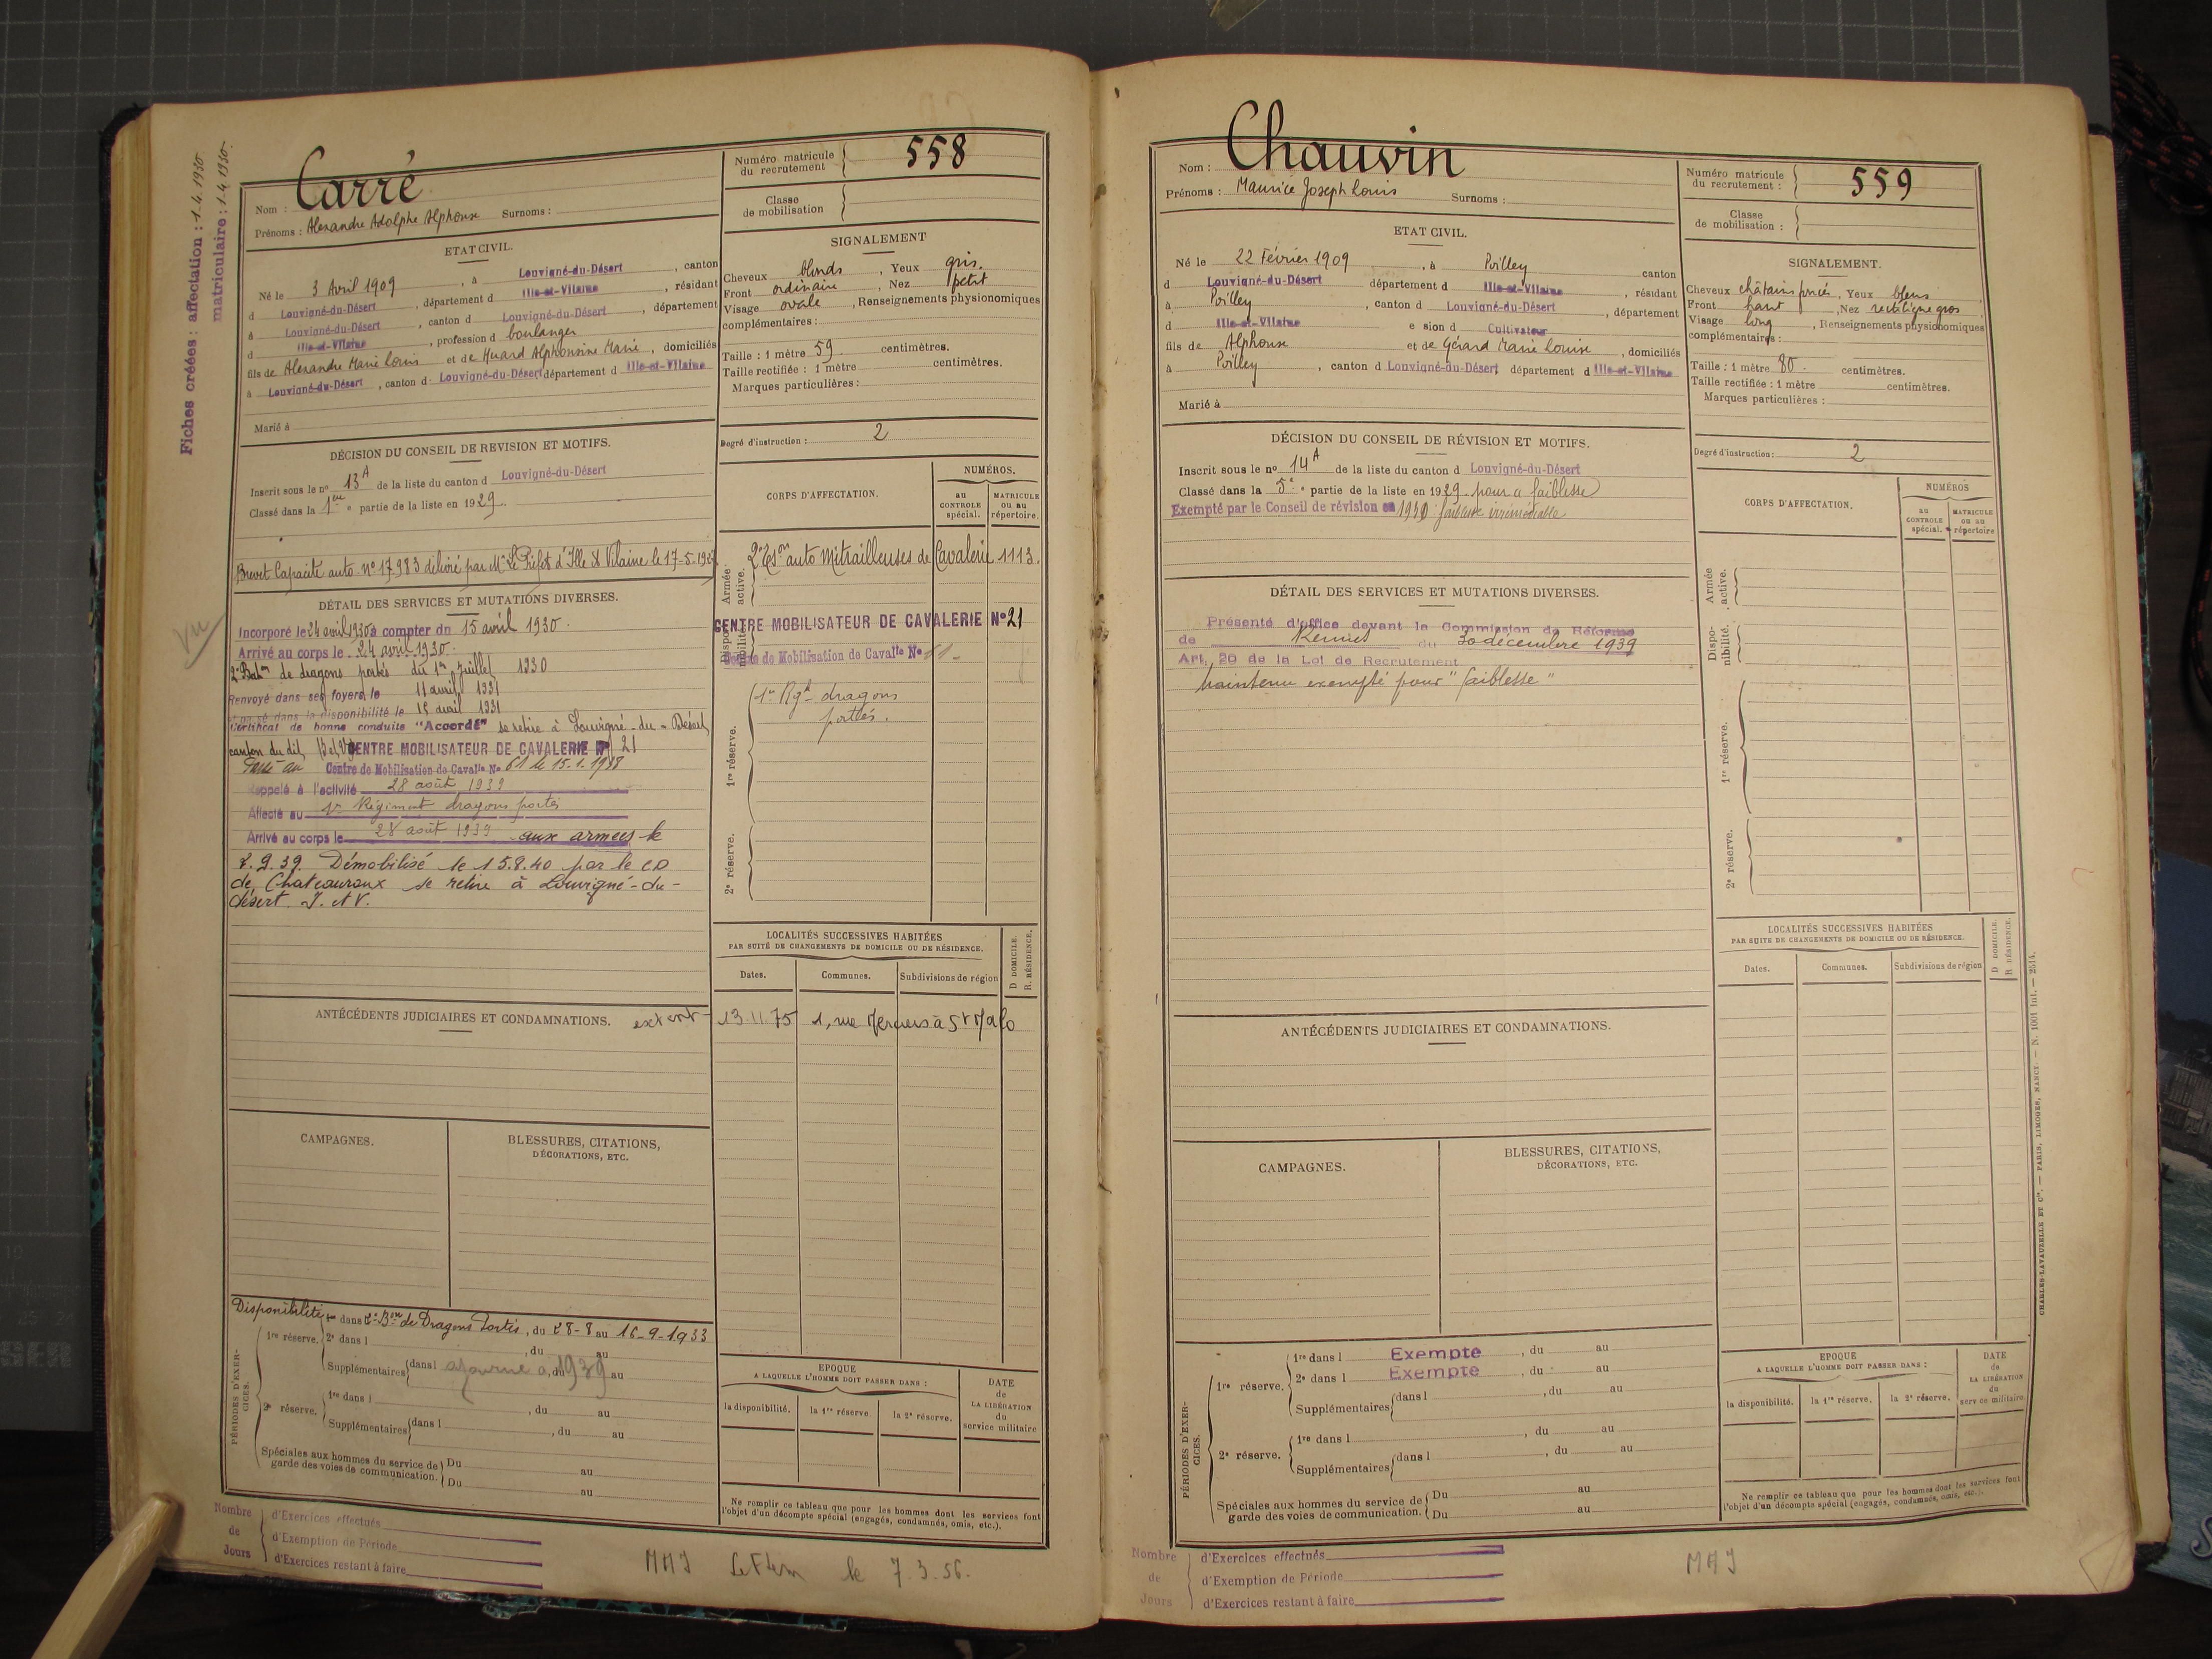 Fiches créées : affectation : 1-4-1930
matriculaire : 1-4-1930.
Nom : Carré
Prénoms : Alexandre Adolphe Alphonse Surnoms :
Numéro matricule du recrutement 558
Classe de mobilisation
ETAT CIVIL.
Né le 3 Avril 1909, à Louvigné-du-Désert, canton
d Louvigné-du-Désert, département d Ille-et-Vilaine, résidant
à Louvigné-du-Désert, canton d Louvigné-du-Désert, département
d Ille-et-Vilaine, profession d boulanger
fils de Alexandre Marie Louis et de Huard Alphonsine Marie, domiciliés
à Louvigné-du-Désert, canton d Louvigné-du-Désert département d Ille-et-Vilaine
Marié à
SIGNALEMENT
Cheveux blonds, Yeux gris.
Front ordinaire, Nez petit
Visage ovale, Renseignements physionomiques
complémentaires :
Taille : 1 mètre 59 centimètres.
Taille rectifiée : 1 mètre centimètres.
Marques particulières :
Degré d'instruction : 2
DÉCISION DU CONSEIL DE REVISION ET MOTIFS.
Inscrit sous le no 13 A de la liste du canton d Louvigné-du-Désert
Classé dans la 1ère partie de la liste en 1929.
Brevet Capacité auto no 17983 délivré par Mr Le Préfet d'Ille & Vilaine le 17-5-
DÉTAIL DES SERVICES ET MUTATIONS DIVERSES.
vu
Incorporé le 24 avril 1930 à compter du 15 avril 1930.
Arrivé au corps le 24 avril 1930.
2e Bat on de dragons portés du 1er Juillet 1930
Renvoyé dans ses foyers le 11 avril 1931
passé dans la disponibilité le 15 avril 1931
Certificat de bonne conduite "Accordé" se retire à Louvigné-du-Désert
canton du dit CENTRE MOBILISATEUR DE CAVALERIE No 21
Passé au Centre de Mobilisation de Cavalie No 61 le 15.1.1938
Rappelé à l'activité 28 août 1939
Affecté au 1er Régiment dragons portés
Arrivé au corps le 28 août 1939 aux armées le
2.9.39. Démobilisé le 15.8.40 par le CD
de Chateauroux se retire à Louvigné-du-
désert. I. et V.
CORPS D'AFFECTATION.
NUMÉROS.
au CONTROLE spécial.
MATRICULE ou au répertoire.
Armée active.
2e Eson auto Mitrailleuses de Cavalerie 1113.
Disponibilité
CENTRE MOBILISATEUR DE CAVALERIE No 21
Centre de Mobilisation de Cavalie No 61
1re réserve.
1er Rgt dragons
portés.
2e réserve.
LOCALITÉS SUCCESSIVES HABITÉES
PAR SUITE DE CHANGEMENTS DE DOMICILE OU DE RÉSIDENCE.
D DOMICILE.
R. RÉSIDENCE.
Dates. Communes. Subdivisions de région
13.11.75 1, rue à St Malo
ANTÉCÉDENTS JUDICIAIRES ET CONDAMNATIONS.
CAMPAGNES.
BLESSURES, CITATIONS,
DÉCORATIONS, ETC.
PÉRIODES D'EXERCICES.
Disponibilité dans 2e Bon de Dragons Portés, du 28-8 au 16-9-1933
1re réserve. 2e dans l , du au
Supplémentaires dans l ajourné a 1939, du au
2e réserve. 1re dans l , du au
Supplémentaires dans l , du au
Spéciales aux hommes du service de garde des voies de communication. Du au
Du au
EPOQUE
A LAQUELLE L'HOMME DOIT PASSER DANS :
la disponibilité. la 1re réserve. la 2e réserve.
DATE de LA LIBÉRATION du service militaire
Ne remplir ce tableau que pour les hommes dont les services font
l'objet d'un décompte spécial (engagés, condamnés, omis, etc.).
Nombre de Jours
d'Exercices effectués
d'Exemption de Période
d'Exercices restant à faire
MAJ le 7.3.56.
Nom : Chauvin
Prénoms : Maurice Joseph Louis Surnoms :
Numéro matricule du recrutement : 559
Classe de mobilisation :
ETAT CIVIL.
Né le 22 Février 1909, à Poilley canton
d Louvigné-du-Désert département d Ille-et-Vilaine, résidant
à Poilley, canton d Louvigné-du-Désert, département
d Ille-et-Vilaine e sion d Cultivateur
fils de Alphonse et de Gérard Marie Louise, domiciliés
à Poilley, canton d Louvigné-du-Désert département d Ille-et-Vilaine
Marié à
SIGNALEMENT.
Cheveux châtains foncés, Yeux bleus
Front haut, Nez rectiligne gros
Visage long, Renseignements physionomiques
complémentaires :
Taille : 1 mètre 80. centimètres.
Taille rectifiée : 1 mètre centimètres.
Marques particulières :
Degré d'instruction : 2
DÉCISION DU CONSEIL DE RÉVISION ET MOTIFS.
Inscrit sous le no 14 A de la liste du canton d Louvigné-du-Désert
Classé dans la 5e partie de la liste en 1929 pour "faiblesse"
Exempté par le Conseil de révision en 1930 faiblesse irrémédiable
DÉTAIL DES SERVICES ET MUTATIONS DIVERSES.
Présenté d'office devant la Commission de Réforme
de Rennes du 30 décembre 1939
Art. 20 de la Loi de Recrutement
Maintenu exempté pour "faiblesse"
CORPS D'AFFECTATION.
NUMÉROS
au CONTROLE spécial.
MATRICULE ou au répertoire
Armée active.
Disponibilité.
1re réserve.
2e réserve.
LOCALITÉS SUCCESSIVES HABITÉES
PAR SUITE DE CHANGEMENTS DE DOMICILE OU DE RÉSIDENCE.
D DOMICILE.
R RÉSIDENCE.
Dates. Communes. Subdivisions de région
ANTÉCÉDENTS JUDICIAIRES ET CONDAMNATIONS.
CAMPAGNES.
BLESSURES, CITATIONS,
DÉCORATIONS, ETC.
PÉRIODES D'EXERCICES.
1re réserve. 1re dans l Exempte, du au
2e dans l Exempte, du au
Supplémentaires dans l , du au
2e réserve. 1re dans l , du au
Supplémentaires dans l , du au
Spéciales aux hommes du service de garde des voies de communication. Du au
Du au
EPOQUE
A LAQUELLE L'HOMME DOIT PASSER DANS :
la disponibilité. la 1re réserve. la 2e réserve.
DATE de LA LIBÉRATION du service militaire.
Ne remplir ce tableau que pour les hommes dont les services font
l'objet d'un décompte spécial (engagés, condamnés, omis, etc.).
Nombre de Jours
d'Exercices effectués
d'Exemption de Période
d'Exercices restant à faire
MAJ
CHARLES-LAVAUZELLE ET Cie. — PARIS, LIMOGES, NANCY. — N. 1001 int. — 2514.